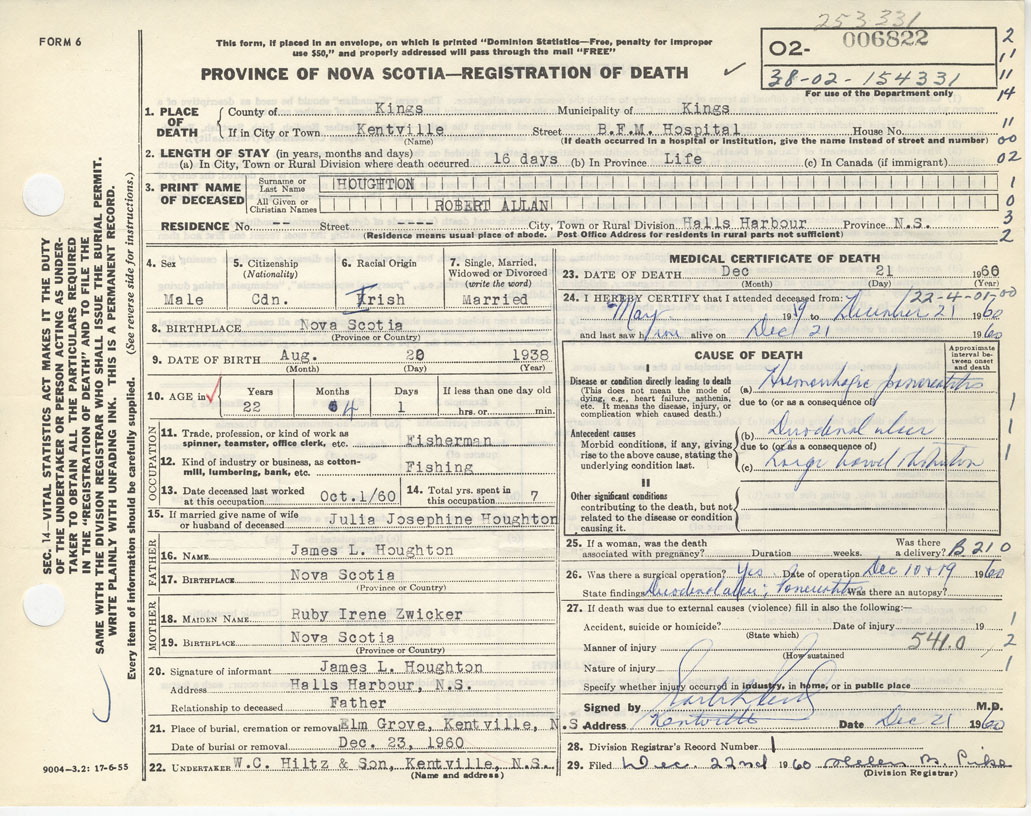 253 331
FORM 6
This form, if placed in an envelope, on which is printed "Dominion Statistics—Free, penalty for improper
use $50," and properly addressed will pass through the mail "FREE"
O2- 006822
38-02-154331
For use of the Department only
PROVINCE OF NOVA SCOTIA—REGISTRATION OF DEATH
2
11
11
14
11
00
02
1
0
3
2
SEC. 14—VITAL STATISTICS ACT MAKES IT THE DUTY
OF THE UNDERTAKER OR PERSON ACTING AS UNDER-
TAKER TO OBTAIN ALL THE PARTICULARS REQUIRED
IN THE "REGISTRATION OF DEATH" AND TO FILE THE
SAME WITH THE DIVISION REGISTRAR WHO SHALL ISSUE THE BURIAL PERMIT.
WRITE PLAINLY WITH UNFADING INK. THIS IS A PERMANENT RECORD.
Every item of information should be carefully supplied. (See reverse side for instructions.)
1. PLACE OF DEATH
County of Kings Municipality of Kings
If in City or Town Kentville Street B.F.M. Hospital House No.
(Name) (If death occurred in a hospital or institution, give the name instead of street and number)
2. LENGTH OF STAY (in years, months and days)
(a) In City, Town or Rural Division where death occurred 16 days (b) In Province Life (c) In Canada (if immigrant)
3. PRINT NAME OF DECEASED
Surname or Last Name HOUGHTON
All Given or Christian Names ROBERT ALLAN
RESIDENCE No. -- Street ---- City, Town or Rural Division Halls Harbour Province N.S.
(Residence means usual place of abode. Post Office Address for residents in rural parts not sufficient)
4. Sex
Male
5. Citizenship (Nationality)
Cdn.
6. Racial Origin
Irish
7. Single, Married, Widowed or Divorced (write the word)
Married
8. BIRTHPLACE Nova Scotia
(Province or Country)
9. DATE OF BIRTH Aug. 20 1938
(Month) (Day) (Year)
10. AGE in
Years Months Days If less than one day old
22 4 1 hrs. or min.
OCCUPATION
11. Trade, profession, or kind of work as spinner, teamster, office clerk, etc. Fisherman
12. Kind of industry or business, as cotton-mill, lumbering, bank, etc. Fishing
13. Date deceased last worked at this occupation Oct.1/60
14. Total yrs. spent in this occupation 7
15. If married give name of wife or husband of deceased Julia Josephine Houghton
FATHER
16. NAME James L. Houghton
17. BIRTHPLACE Nova Scotia
(Province or Country)
MOTHER
18. MAIDEN NAME Ruby Irene Zwicker
19. BIRTHPLACE Nova Scotia
(Province or Country)
20. Signature of informant James L. Houghton
Address Halls Harbour, N.S.
Relationship to deceased Father
21. Place of burial, cremation or removal Elm Grove, Kentville, N.S.
Date of burial or removal Dec. 23, 1960
22. UNDERTAKER W.C. Hiltz & Son, Kentville, N.S.
(Name and address)
9004-3.2: 17-6-55
MEDICAL CERTIFICATE OF DEATH
23. DATE OF DEATH Dec 21 1960
(Month) (Day) (Year)
22-4-01-00
24. I HEREBY CERTIFY that I attended deceased from:
May 19 to December 21 1960
and last saw him alive on Dec 21 1960
CAUSE OF DEATH
Approximate interval between onset and death
I
Disease or condition directly leading to death
(This does not mean the mode of dying, e.g., heart failure, asthenia, etc. It means the disease, injury, or complication which caused death.)
(a) Hemorrhagic pancreatitis
due to (or as a consequence of)
Antecedent causes
Morbid conditions, if any, giving rise to the above cause, stating the underlying condition last.
(b) Duodenal ulcer
due to (or as a consequence of)
(c) Large bowel
II
Other significant conditions
contributing to the death, but not related to the disease or condition causing it.
1
1
1
25. If a woman, was the death associated with pregnancy? Duration weeks. Was there a delivery? B 210
26. Was there a surgical operation? Yes Date of operation Dec 10 + 19 1960
State findings Duodenal ulcer; Pancreatitis Was there an autopsy?
27. If death was due to external causes (violence) fill in also the following:—
Accident, suicide or homicide? Date of injury 19
(State which)
Manner of injury 541.0
(How sustained
Nature of injury
1
2
1
Specify whether injury occurred in industry, in home, or in public place
Signed by M.D.
Address Kentville Date Dec 21 1960
28. Division Registrar's Record Number 1
29. Filed Dec. 22nd 1960 Helen B.
(Division Registrar)